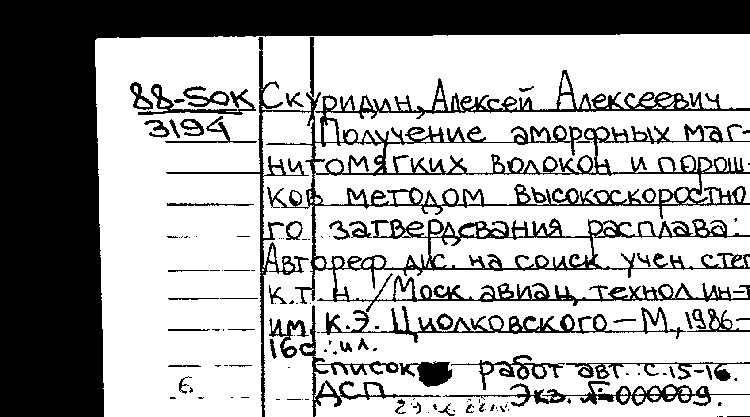 88-50К Скуридин, Алексей Алексеевич
3194 Получение аморфных маг-
нитомягких волокон и порош-
ков методом высокоскоростно
го затвердевания расплава:
Автореф дис. на соиск. учен. степ
к.т.н. / Моск. авиац. технол. ин-т
им. К.Э. Циолковского — М., 1986 —
16с.: ил.
Список работ авт.: с. 15-16.
6 ДСП. Экз. № 000009.